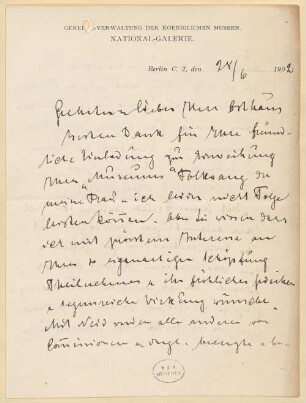 GENERAL-VERWALTUNG DER KOENIGLICHEN MUSEEN.
NATIONAL-GALERIE.
Berlin C. 2, den 28/6 1902
Geehrter u lieber Herr Osthaus
besten Dank für Ihre freund-
liche Einladung zur Einweihung
Ihres "Museums" Folkwang der
meine Frau u ich leider nicht Folge
leisten können. Aber Sie wissen dass
ich mit grösstem Interesse an
Ihrer so eigenartigen Schöpfung
Theilnehme u ihr fröhliches gedeihen
u segensreiche Wirkung wünsche.
Mit Neid werden alle anderen von
Commissionen u dergl. beengte